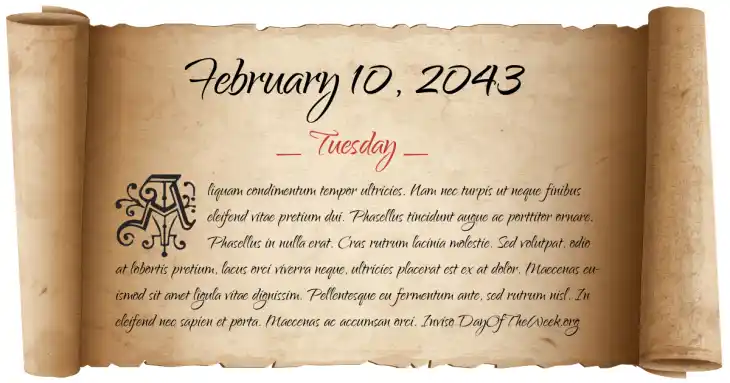 February 10, 2043
_ Tuesday _
Aliquam condimentum tempor ultricies. Nam nec turpis ut neque finibus
eleifend vitae pretium dui. Phasellus tincidunt augue ac porttitor ornare.
Phasellus in nulla erat. Cras rutrum lacinia molestie. Sed volutpat, odio
at lobortis pretium, lacus orci viverra neque, ultricies placerat est ex at dolor. Maecenas eu-
ismod sit amet ligula vitae dignissim. Pellentesque eu fermentum ante, sed rutrum nisl. In
eleifend nec sapien et porta. Maecenas ac accumsan orci. Inviso DayOfTheWeek.org